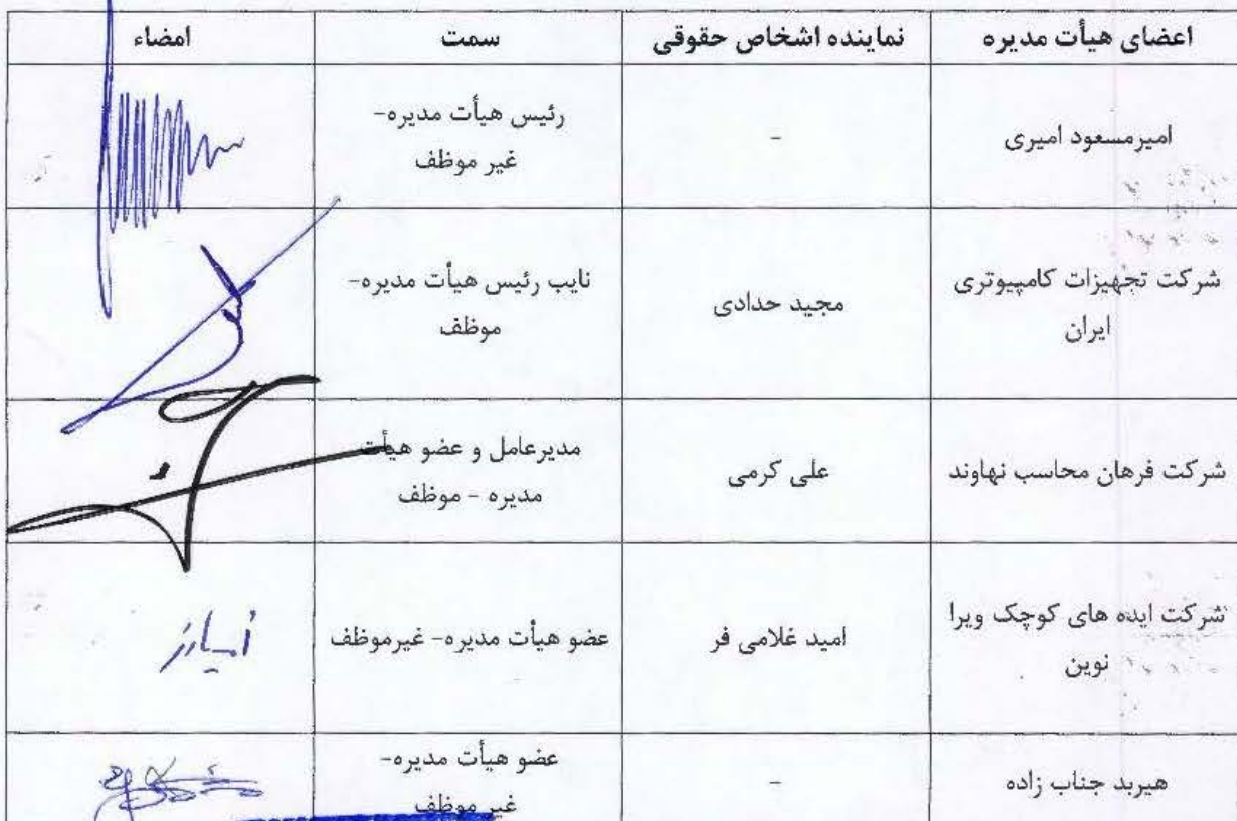 اعضای هیأت مدیره	نماینده اشخاص حقوقی	سمت	امضاء
امیرمسعود امیری	-	رئیس هیأت مدیره-
غیر موظف
شرکت تجهیزات کامپیوتری
ایران	مجید حدادی	نایب رئیس هیأت مدیره-
موظف
شرکت فرهان محاسب نهاوند	علی کرمی	مدیرعامل و عضو هیأت
مدیره - موظف
شرکت ایده های کوچک ویرا
نوین	امید غلامی فر	عضو هیأت مدیره- غیرموظف
هیربد جناب زاده	-	عضو هیأت مدیره-
غیر موظف